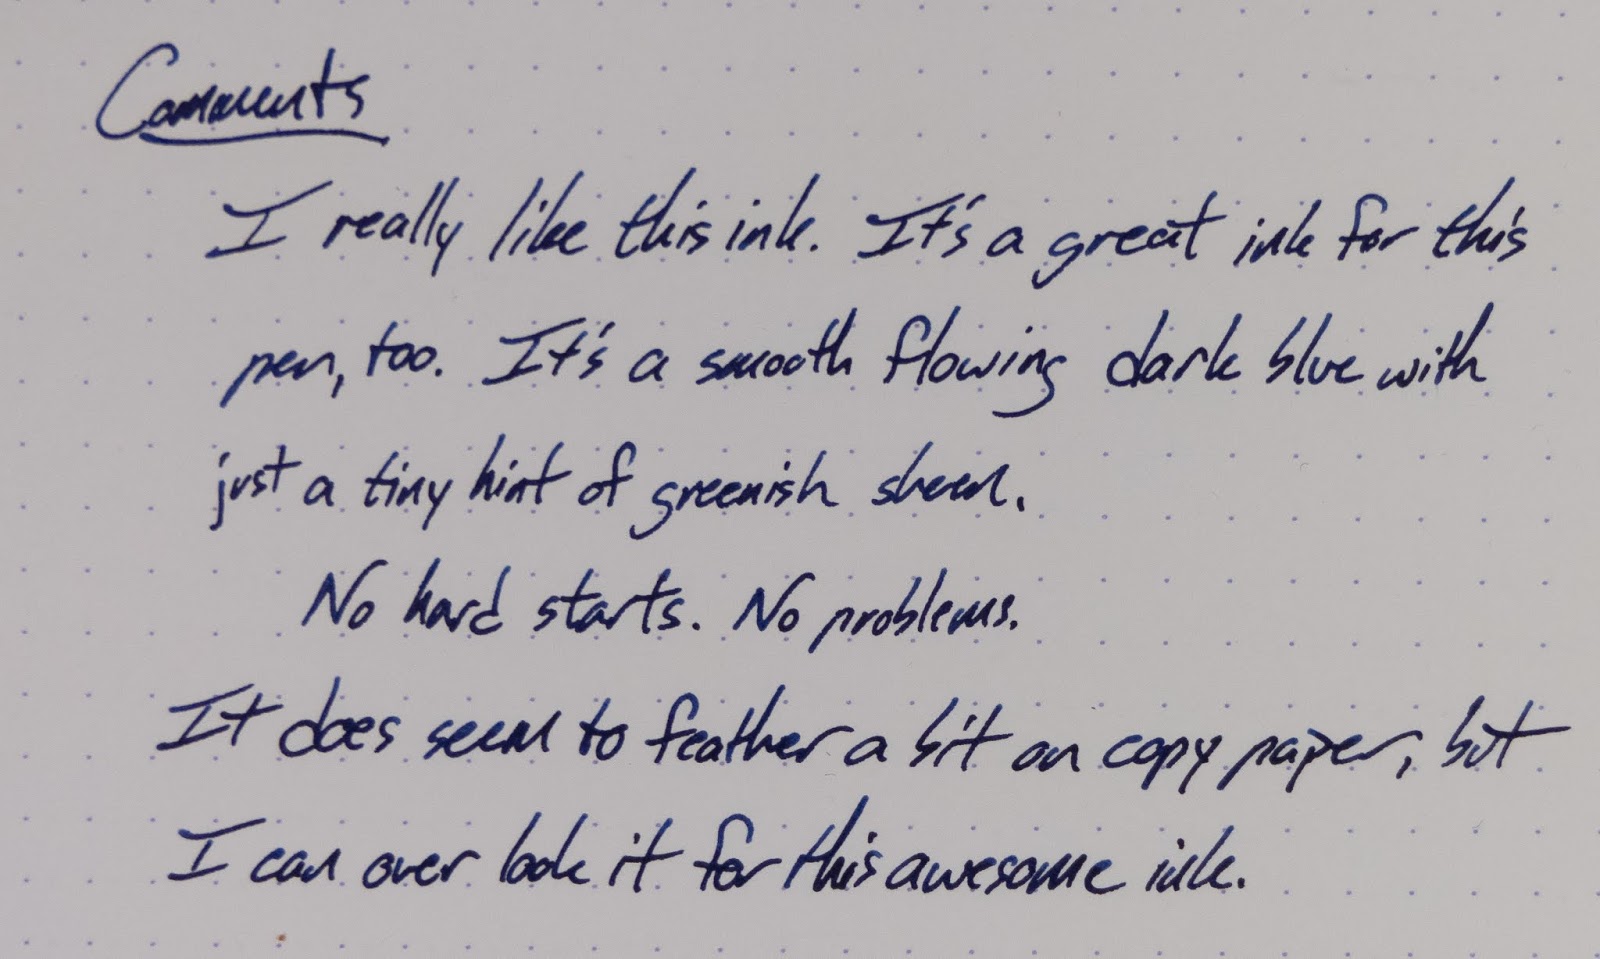 Comments
I really like this ink. It's a great ink for this
pen, too. It's a smooth flowing dark blue with
just a tiny hint of greenish sheen.
No hard starts. No problems.
It does seem to feather a bit on copy paper, but
I can over look it for this awesome ink.